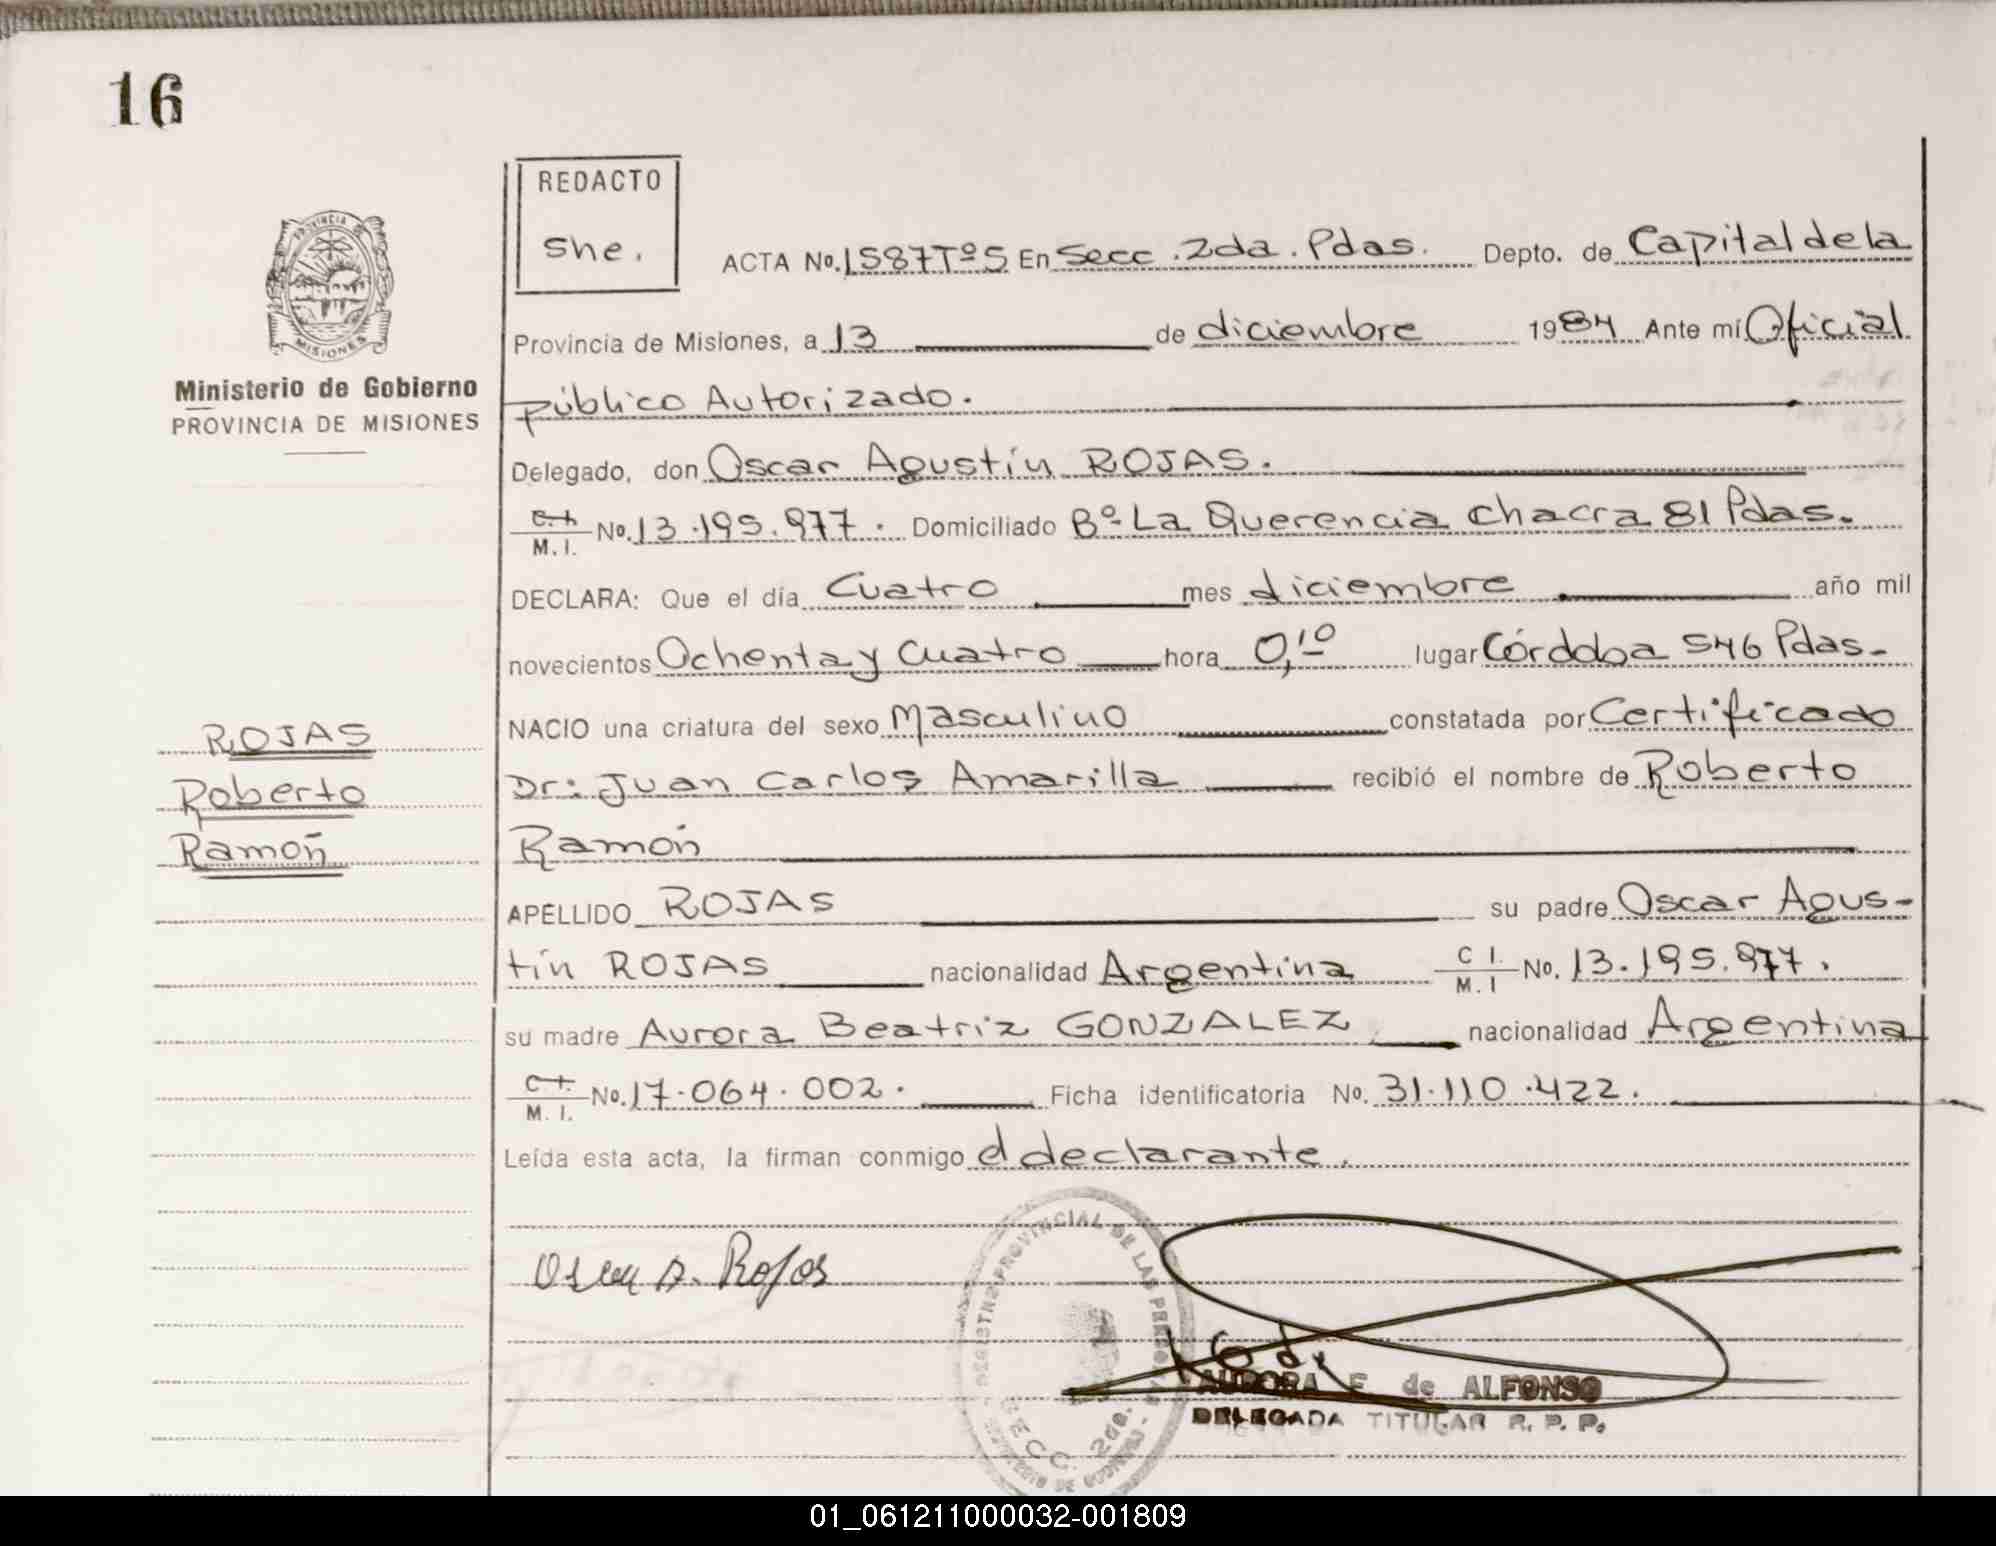 16
PROVINCIA
MISIONES
Ministerio de Gobierno
PROVINCIA DE MISIONES
REDACTO
She.
ACTA No. 1587 Tº 5 En Secc. 2da. Pdas. Depto. de Capital de la
Provincia de Misiones, a 13 de diciembre 1984 Ante mi Oficial
público Autorizado.
Delegado, don Oscar Agustín ROJAS.
C.I. / M.I. No. 13.195.977. Domiciliado Bº La Querencia Chacra 81 Pdas.
DECLARA: Que el día Cuatro mes diciembre año mil
novecientos Ochenta y Cuatro hora 0,10 lugar Córdoba 546 Pdas.
NACIO una criatura del sexo Masculino constatada por Certificado
Dr: Juan Carlos Amarilla recibió el nombre de Roberto
Ramón
APELLIDO ROJAS su padre Oscar Agus-
tín ROJAS nacionalidad Argentina C I. / M. I No. 13.195.977.
su madre Aurora Beatriz GONZALEZ nacionalidad Argentina
C.I. / M. I. No. 17.064.002. Ficha identificatoria No. 31.110.422.
Leída esta acta, la firman conmigo el declarante.
ROJAS
Roberto
Ramón
Oscar A. Rojas
REGISTRO PROVINCIAL DE LAS PERSONAS
SECC. 2da.
AURORA F. de ALFONSO
DELEGADA TITULAR R. P. P.
01_061211000032-001809